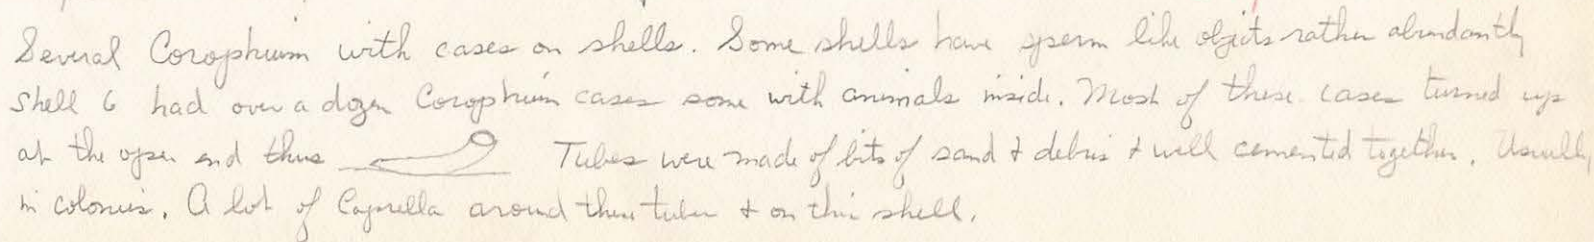 Several Corophium with cases on shells. Some shells have sperm like objects rather abundantly
Shell 6 had over a dozen Corophium cases some with animals inside. Most of these cases turned up
at the open end thus Tubes were made of bits of sand & debris & well cemented together. Usually
in colonies. A lot of Caprella around these tubes & on this shell.